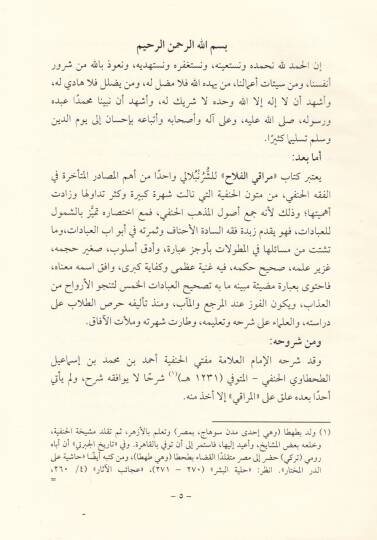 بسم الله الرحمن الرحيم
إن الحمد لله نحمده ونستعينه، ونستغفره ونستهديه، ونعوذ بالله من شرور
أنفسنا، ومن سيئات أعمالنا، من يهده الله فلا مضل له، ومن يضلل فلا هادي له،
وأشهد أن لا إله إلا الله وحده لا شريك له، وأشهد أن نبينا محمدًا عبده
ورسوله، صلى الله عليه، وعلى آله وأصحابه وأتباعه بإحسان إلى يوم الدين
وسلم تسليما كثيرًا.
أما بعد:
يعتبر كتاب «مراقي الفلاح» للشُّرُنْبُلالي واحدًا من أهم المصادر المتأخرة في
الفقه الحنفي، من متون الحنفية التي نالت شهرة كبيرة وكثر تداولها وزادت
أهميتها؛ وذلك لأنه جمع أصول المذهب الحنفي، فمع اختصاره تميَّز بالشمول
للعبادات، فهو يقدم زبدة فقه السادة الأحناف وثمرته في أبواب العبادات، وما
تشتت من مسائلها في المطولات بأوجز عبارة، وأدق أسلوب، صغير حجمه،
غزير علمه، صحيح حكمه، فيه غنية عظمى وكفاية كبرى، وافق اسمه معناه،
فاحتوى بعبارة مضيئة مبينه ما به تصحيح العبادات الخمس لتنجو الأرواح من
العذاب، ويكون الفوز عند المرجع والمآب، ومنذ تأليفه حرص الطلاب على
دراسته، والعلماء على شرحه وتعليمه، وطارت شهرته وملأت الآفاق.
ومن شروحه:
وقد شرحه الإمام العلامة مفتي الحنفية أحمد بن محمد بن إسماعيل
الطحطاوي الحنفي – المتوفي (١٢٣١ هـ)(١) شرحًا لا يوافقه شرح، ولم يأتي
أحدًا بعده علق على «المراقي» إلا أخذ منه.
(١) ولد بطهطا (وهي إحدى مدن سوهاج، بمصر) وتعلم بالأزهر، ثم تقلد مشيخة الحنفية،
وخلعه بعض المشايخ، وأعيد إليها، فاستمر إلى أن توفي بالقاهرة. وفي «تاريخ الجبرتي» أن أباه
رومي (تركي) حضر إلى مصر متقلدًا القضاء بطحطا (وهي طهطا)، ومن كتبه أيضًا «حاشية على
الدر المختار». انظر: «حلية البشر» (٢٧٠ – ٢٧١)، «عجائب الآثار» (٤/ ٢٦٠،
=
– ٥ –